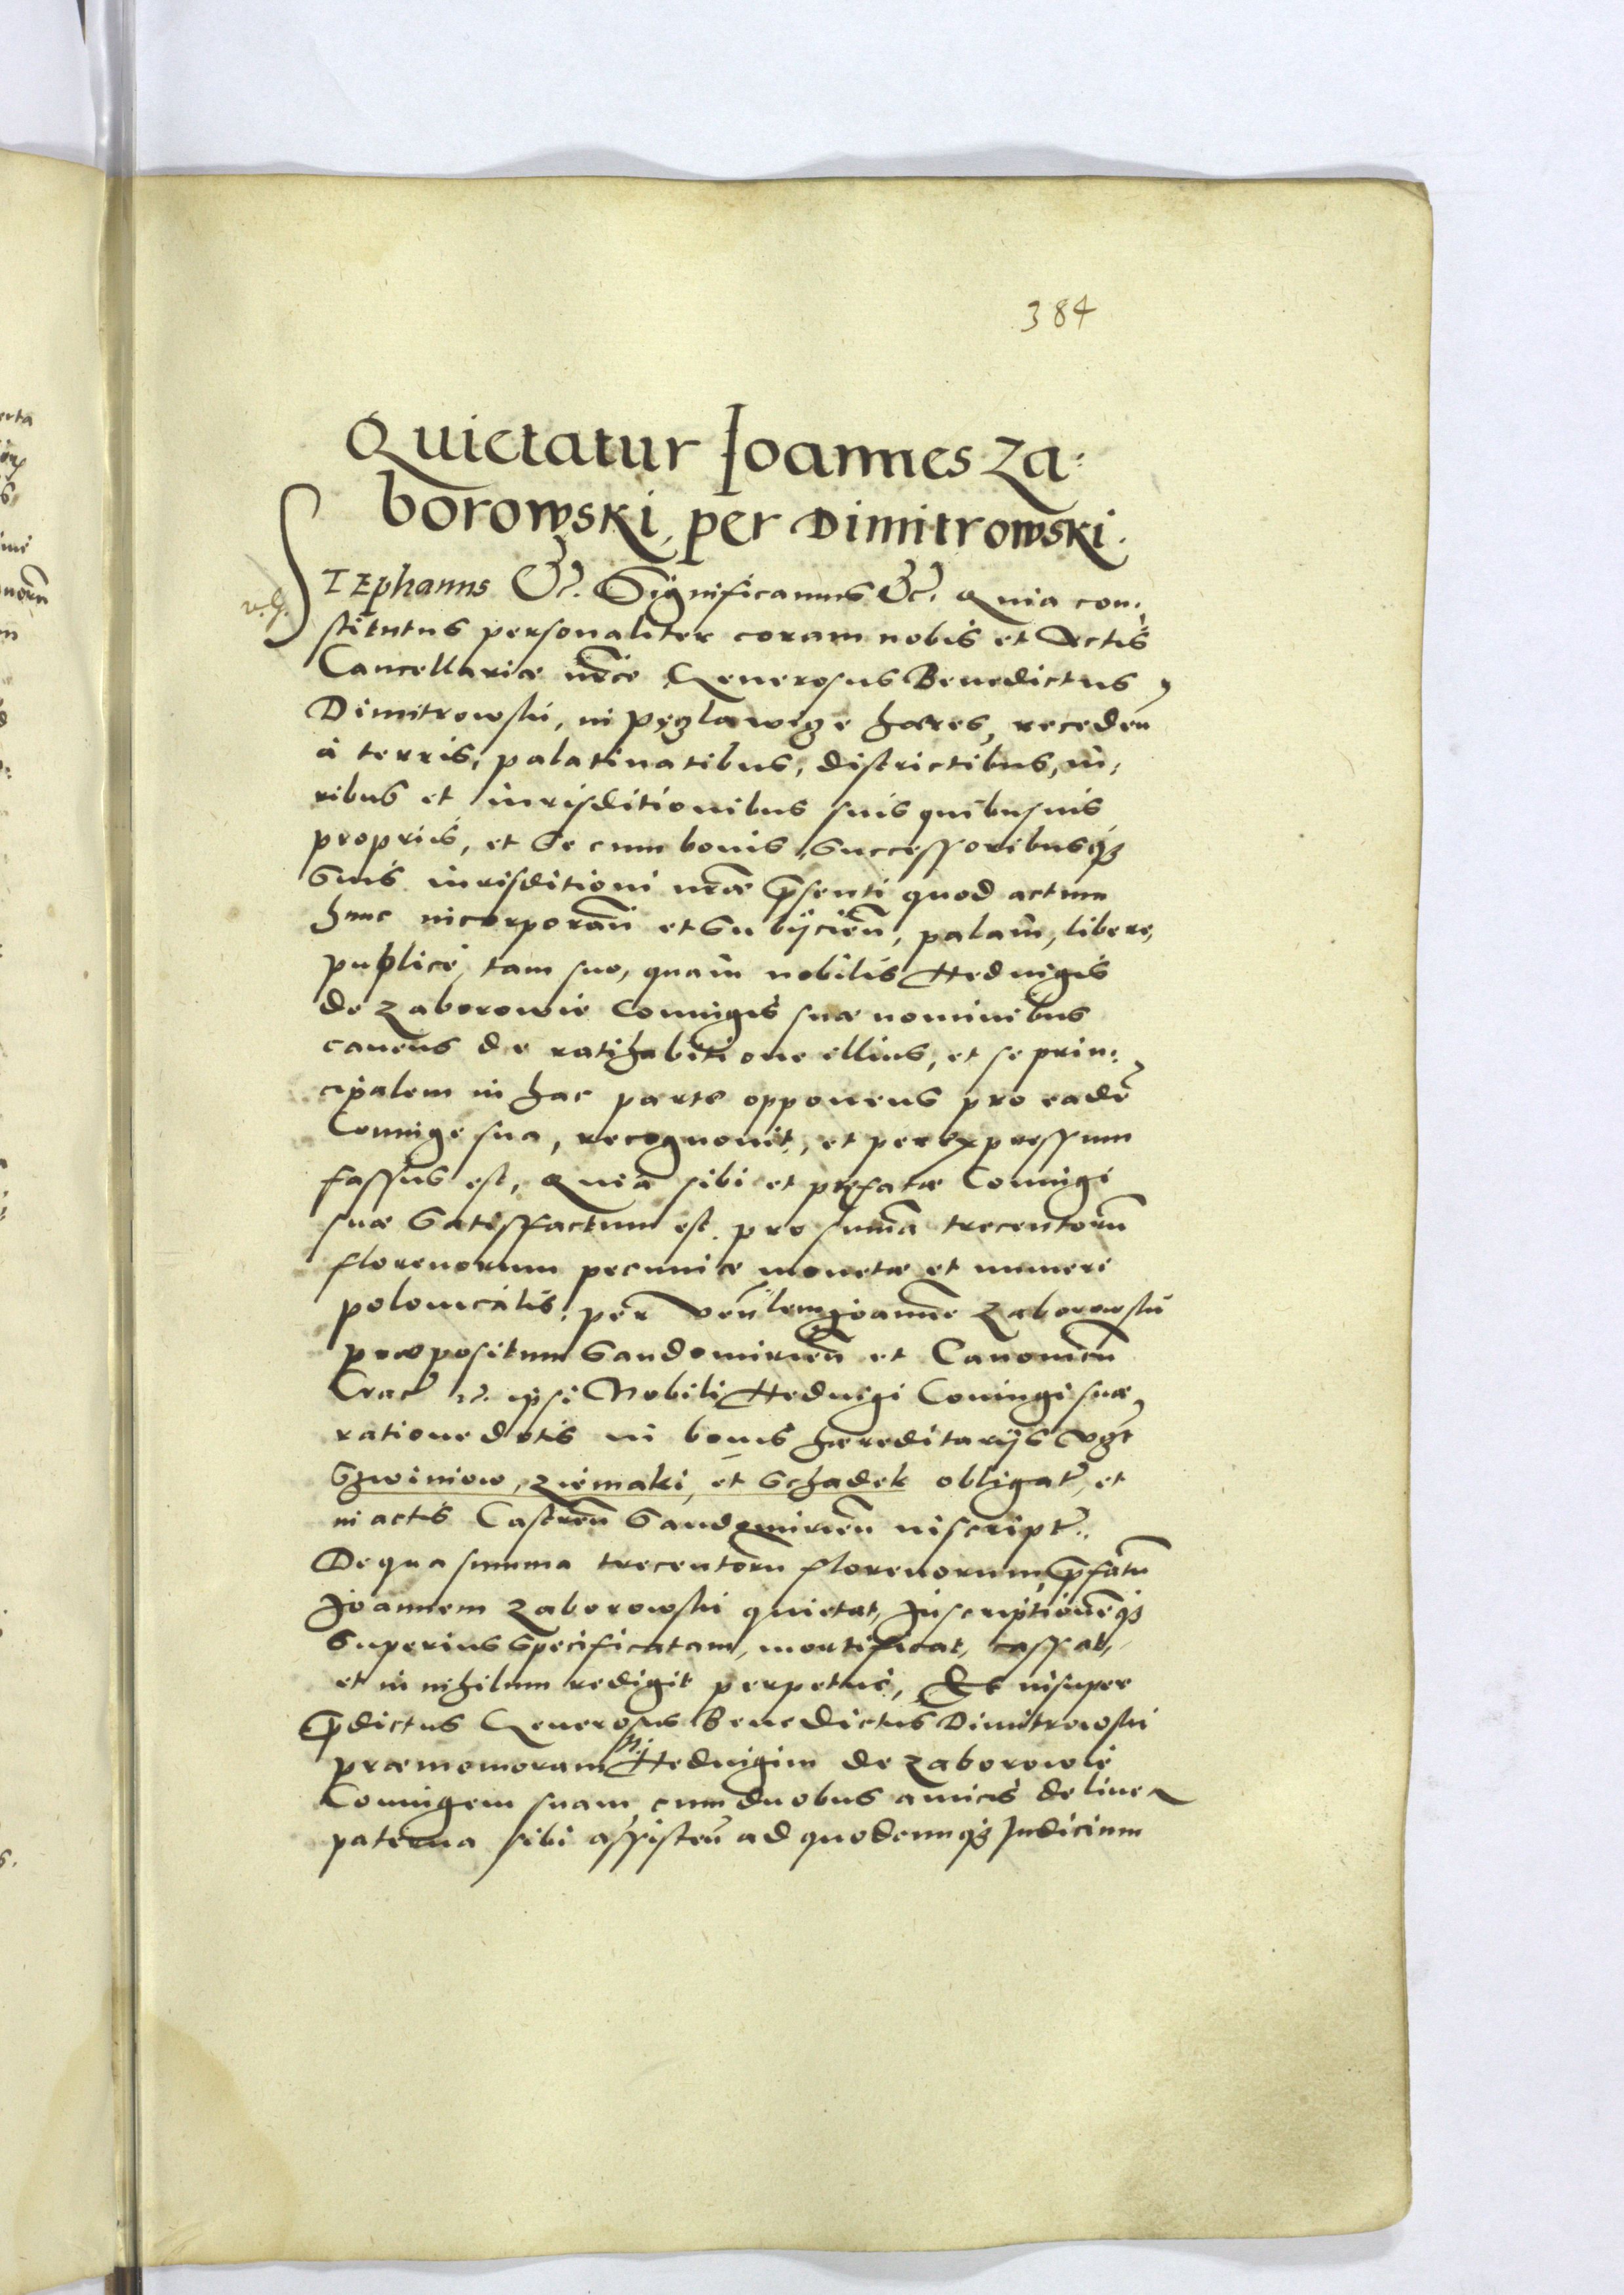 384
Quietatur Joannes Za:
borowski, per Dimitrowski.
STEphanus &c. Significamus &c. Quia con:
stitutus personaliter coram nobis et Actis
Cancellariæ nrãe Generosus Benedictus
Dimitrowski, in hæres, recedeñ
à terris, palatinatibus, districtibus, iu:
ribus et iurisditionibus suis quibusuis
proprijs, et se cum bonis, successoribusq3
suis iurisditioni nrãe p̃senti quod actum
hunc incorporañ et subijcieñ, palam, libere,
publice, tam suo, quam nobilis Heduigis
de Zaborowie Coniugis suæ nominibus
cauens de ratihabitione illius, et se prin:
cipalem in hac parte opponens pro eadẽ
Coniuge sua, recognouit, et per expressum
fassus est, Quia sibi et præfatæ Coniugi
suæ satisfactum est pro summa trecentorũ
florenorum pecuniæ monetæ et numeri
polonicalis, per Veñlem Joannẽ Zaborowski
præpositum Sandomirieñ et Canonicũ
Crac̃ &c. ipsi Nobili Heduigi Coniugi suæ
ratione dotis in bonis hæreditarijs vg̃t
Gzwiniow, Ziemaki, et Schadek obligat̃, et
in actis Castreñ Sandomirieñ inscript̃.
De qua summa trecentorũ florenorum, p̃fatũ
Joannem Zaborowski quietat, Inscriptionẽq3
superius specificatam, mortificat, cassat,
et in nihilum redigit perpetuè, Et insuper
p̃dictus Generosus Benedictus Dimitrowski
præmemoram Heduigim de Zaborowie
Coniugem suam cum duobus amicis de linea
paterna sibi assisteñ ad quodcunq3 Judicium